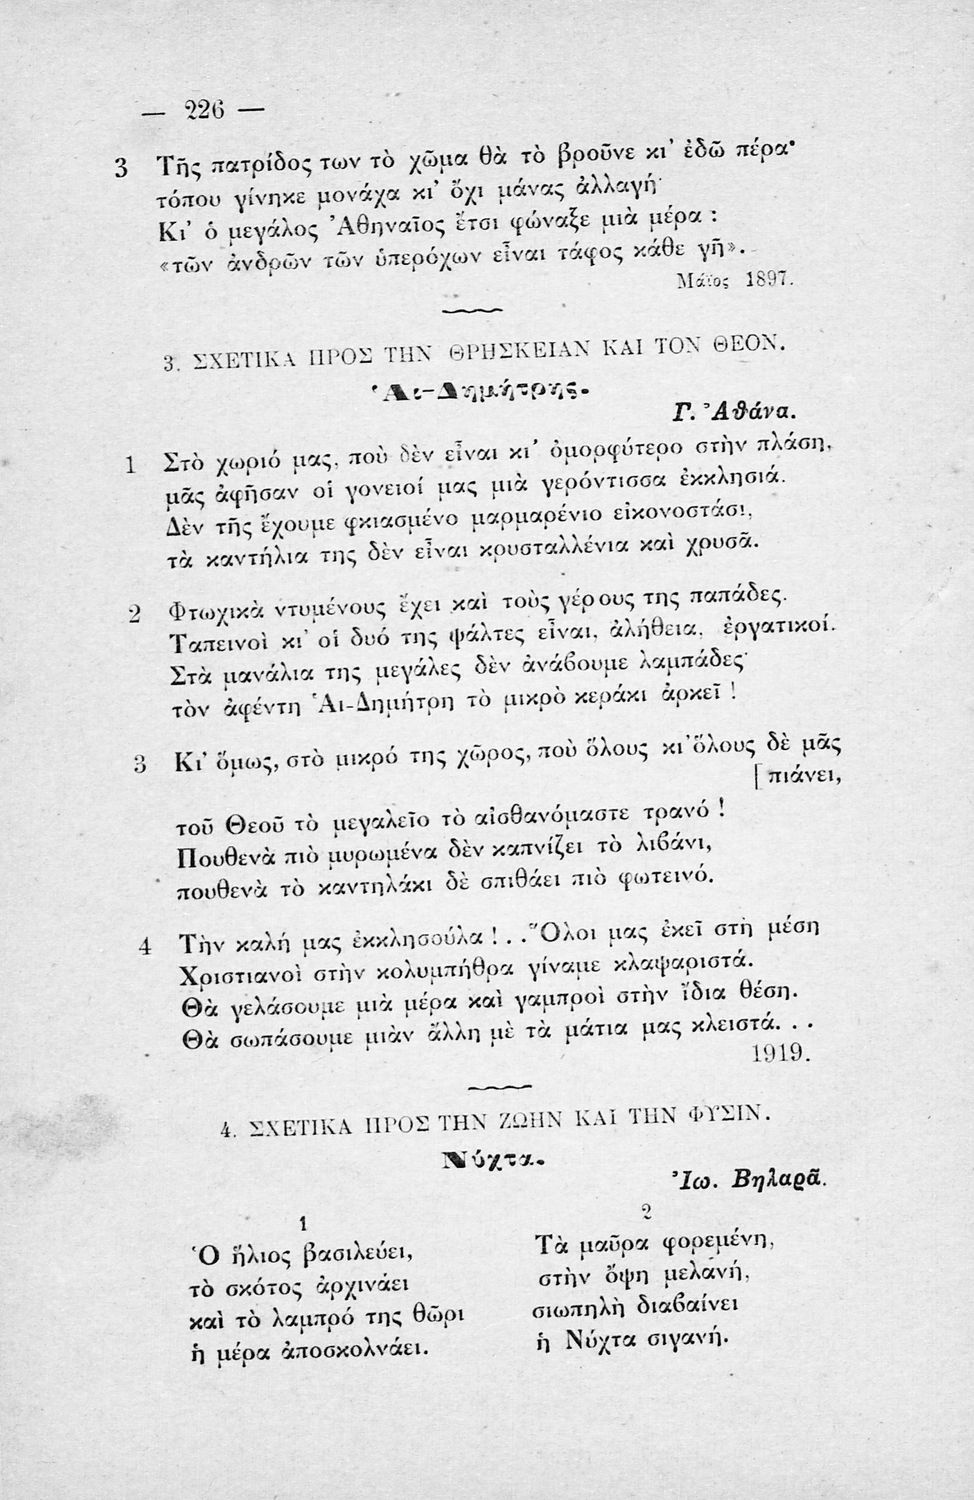 — 226 —
3 Τῆς πατρίδος των τὸ χῶμα θὰ τὸ βροῦνε κι' ἐδῶ πέρα·
τόπου γίνηκε μονάχα κι' ὄχι μάνας ἀλλαγή·
Κι' ὁ μεγάλος Ἀθηναῖος ἔτσι φώναξε μιὰ μέρα :
«τῶν ἀνδρῶν τῶν ὑπερόχων εἶναι τάφος κάθε γῆ».
Μάϊος 1897.
3. ΣΧΕΤΙΚΑ ΠΡΟΣ ΤΗΝ ΘΡΗΣΚΕΙΑΝ ΚΑΙ ΤΟΝ ΘΕΟΝ.
Ἁι-Δημήτρης.
Γ. Ἀθάνα.
1 Στὸ χωριό μας, ποὺ δὲν εἶναι κι' ὀμορφύτερο στὴν πλάση,
μᾶς ἀφῆσαν οἱ γονειοί μας μιὰ γερόντισσα ἐκκλησιά.
Δὲν τῆς ἔχουμε φκιασμένο μαρμαρένιο εἰκονοστάσι,
τὰ καντήλια της δὲν εἶναι κρυσταλλένια καὶ χρυσᾶ.
2 Φτωχικὰ ντυμένους ἔχει καὶ τοὺς γέρους της παπάδες.
Ταπεινοὶ κι' οἱ δυό της ψάλτες εἶναι, ἀλήθεια, ἐργατικοί.
Στὰ μανάλια της μεγάλες δὲν ἀνάβουμε λαμπάδες·
τὸν ἀφέντη Ἁι-Δημήτρη τὸ μικρὸ κεράκι ἀρκεῖ !
3 Κι' ὅμως, στὸ μικρό της χῶρος, ποὺ ὅλους κι' ὅλους δὲ μᾶς
[πιάνει,
τοῦ Θεοῦ τὸ μεγαλεῖο τὸ αἰσθανόμαστε τρανό !
Πουθενὰ πιὸ μυρωμένα δὲν καπνίζει τὸ λιβάνι,
πουθενὰ τὸ καντηλάκι δὲ σπιθάει πιὸ φωτεινό.
4 Τὴν καλή μας ἐκκλησούλα !. . . Ὅλοι μας ἐκεῖ στὴ μέση
Χριστιανοὶ στὴν κολυμπήθρα γίναμε κλαψαριστά.
Θὰ γελάσουμε μιὰ μέρα καὶ γαμπροὶ στὴν ἴδια θέση.
Θὰ σωπάσουμε μιὰν ἄλλη μὲ τὰ μάτια μας κλειστά. . .
1919.
4. ΣΧΕΤΙΚΑ ΠΡΟΣ ΤΗΝ ΖΩΗΝ ΚΑΙ ΤΗΝ ΦΥΣΙΝ.
Νύχτα.
Ἰω. Βηλαρᾶ.
1
Ὁ ἥλιος βασιλεύει,
τὸ σκότος ἀρχινάει
καὶ τὸ λαμπρό της θῶρι
ἡ μέρα ἀποσκολνάει.
2
Τὰ μαῦρα φορεμένη,
στὴν ὄψη μελανή,
σιωπηλὴ διαβαίνει
ἡ Νύχτα σιγανή.